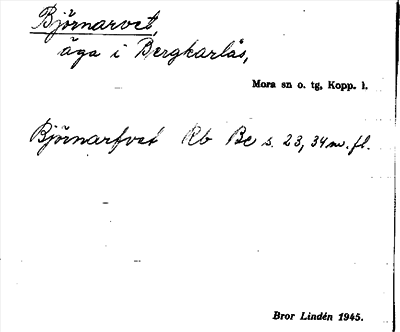 Björnarvet,
äga i Bergkarlås,
Mora sn o. tg, Kopp. l.
Björnarfvet Rb Be s. 23, 34 m. fl.
Bror Lindén 1945.